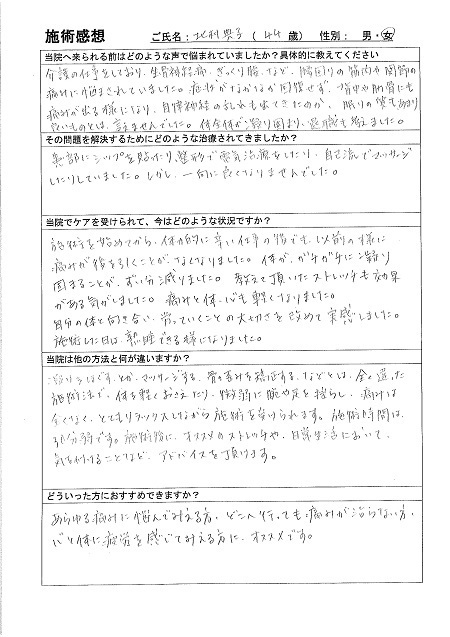 施術感想 ご氏名: 北村 典子 ( 44 歳) 性別: 男・女
当院へ来られる前はどのような声で悩まれていましたか?具体的に教えてください
介護の仕事をしており、坐骨神経痛、ぎっくり腰、など、腰回りの筋肉や関節の
痛みに悩まされていました。疲労がなかなか回復せず、背中や肋骨にも
痛みが出る様になり、自律神経の乱れも出てきたのか、眠りの質もあまり
良いものとは、言えませんでした。体全体が凝り固まり、
その問題を解決するためにどのような治療されてきましたか?
患部にシップを貼ったり、整形で電気治療をしたり、自己流でマッサージ
したりしていました。しかし、一向に良くなりませんでした。
当院でケアを受けられて、今はどのような状況ですか?
施術を始めてから、体力的に辛い仕事の後でも、以前の様に
痛みが後を引くことが、なくなりました。体が、ガチガチに凝り
固まることが、ずい分減りました。教えて頂いたストレッチも効果
がある気がしました。痛みと体、心も軽くなりました。
自分の体と向き合い、労っていくことの大切さを改めて実感しました。
施術した日は、熟睡できる様になりました。
当院は他の方法と何が違いますか?
とか、マッサージする、骨の歪みを矯正する、などとは、全く違った
施術法で、体を軽くおさえたり、微弱に腕や足を揺らし、痛みは
全くなく、とてもリラックスしながら施術を受けられます。施術時間は、
分弱です。施術後に、オススメのストレッチや、日常生活において、
気を付けることなど、アドバイスを頂けます。
どういった方におすすめできますか?
あらゆる痛みに悩んでみえる方、どこへ行っても痛みが治らない方、
心と体に疲労を感じてみえる方に、オススメです。